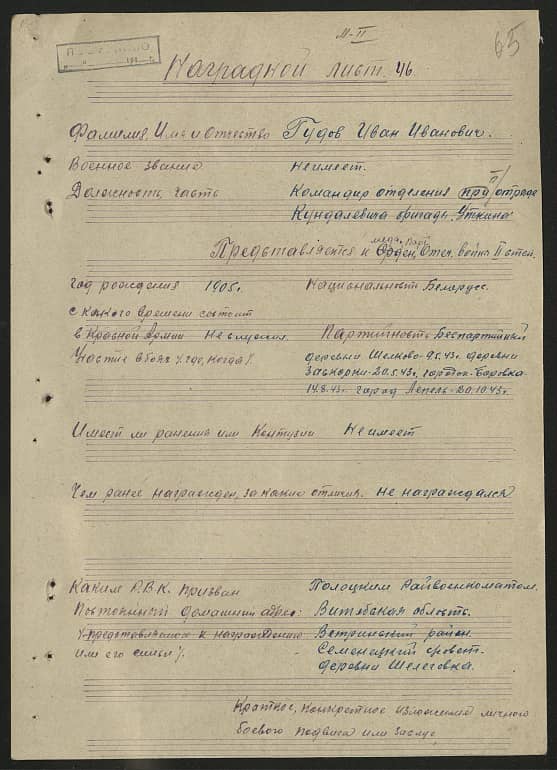 М-II
65
Наградной лист 46.
Фамилия, Имя и Отчество Гудов Иван Иванович.
Военное звание Не имеет.
Должность, часть Командир отделения при отряде
Кундалевича бригады Уткина
Представляется к Орден, Отеч. война II степ.
Год рождения 1905 г. Национальность Беларусс.
с какого времени состоит
в Красной Армии Не служил. Партийность Беспартийный
Участие в боях (где, когда). деревни Шелково-9.5.43г. деревни
20.5.43г. городок-Боровка
14.8.43г. город Лепель-20.10.43г.
Имеет ли ранения или Контузии Не имеет
Чем ранее награжден, за какие отличия. не награждался
Каким Р.В.К. призван Полоцким Райвоенкоматом.
Постоянный домашний адрес: Витебская область.
представляемого к награждению Ветринский район.
или его семьи Семенецкий совет.
деревня Шелеговка.
Краткое, конкретное изложение личного
боевого подвига или заслуг